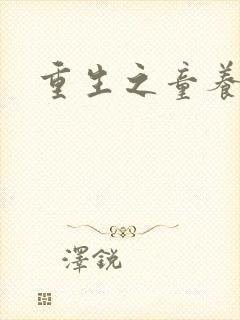 重生之童養
澤銳